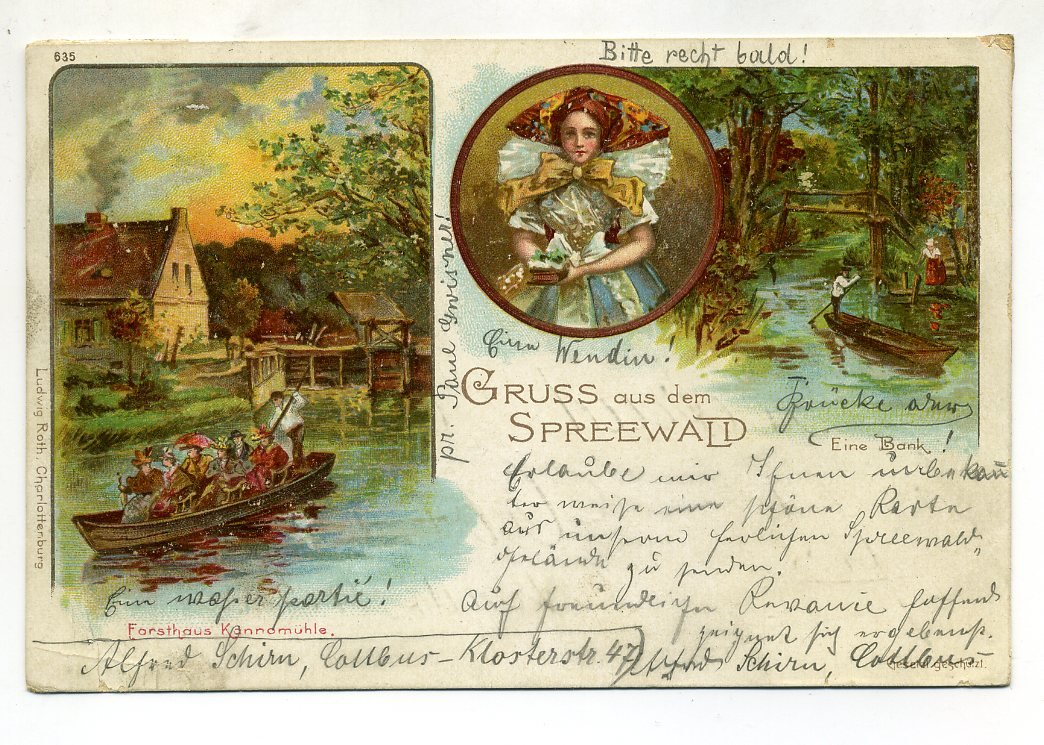 635
Bitte recht bald!
pr. Paul Gwisner!
Eine Wendin!
GRUSS aus dem
SPREEWALD
Brücke oder
Eine Bank !
Erlaube mir Ihnen unbekann
ter weise eine schöne Karte
aus unserm herlichen Spreewald„
gelände zu senden.
Auf freundliche Revanie hoffend
zeignet sich ergebenst.
Alfred Schirn, Cottbus
Ein wasser partie!
Forsthaus Kannomühle.
Alfred Schirn, Cottbus – Klosterstr. 47
Gesetzl. geschützt.
Ludwig Roth, Charlottenburg